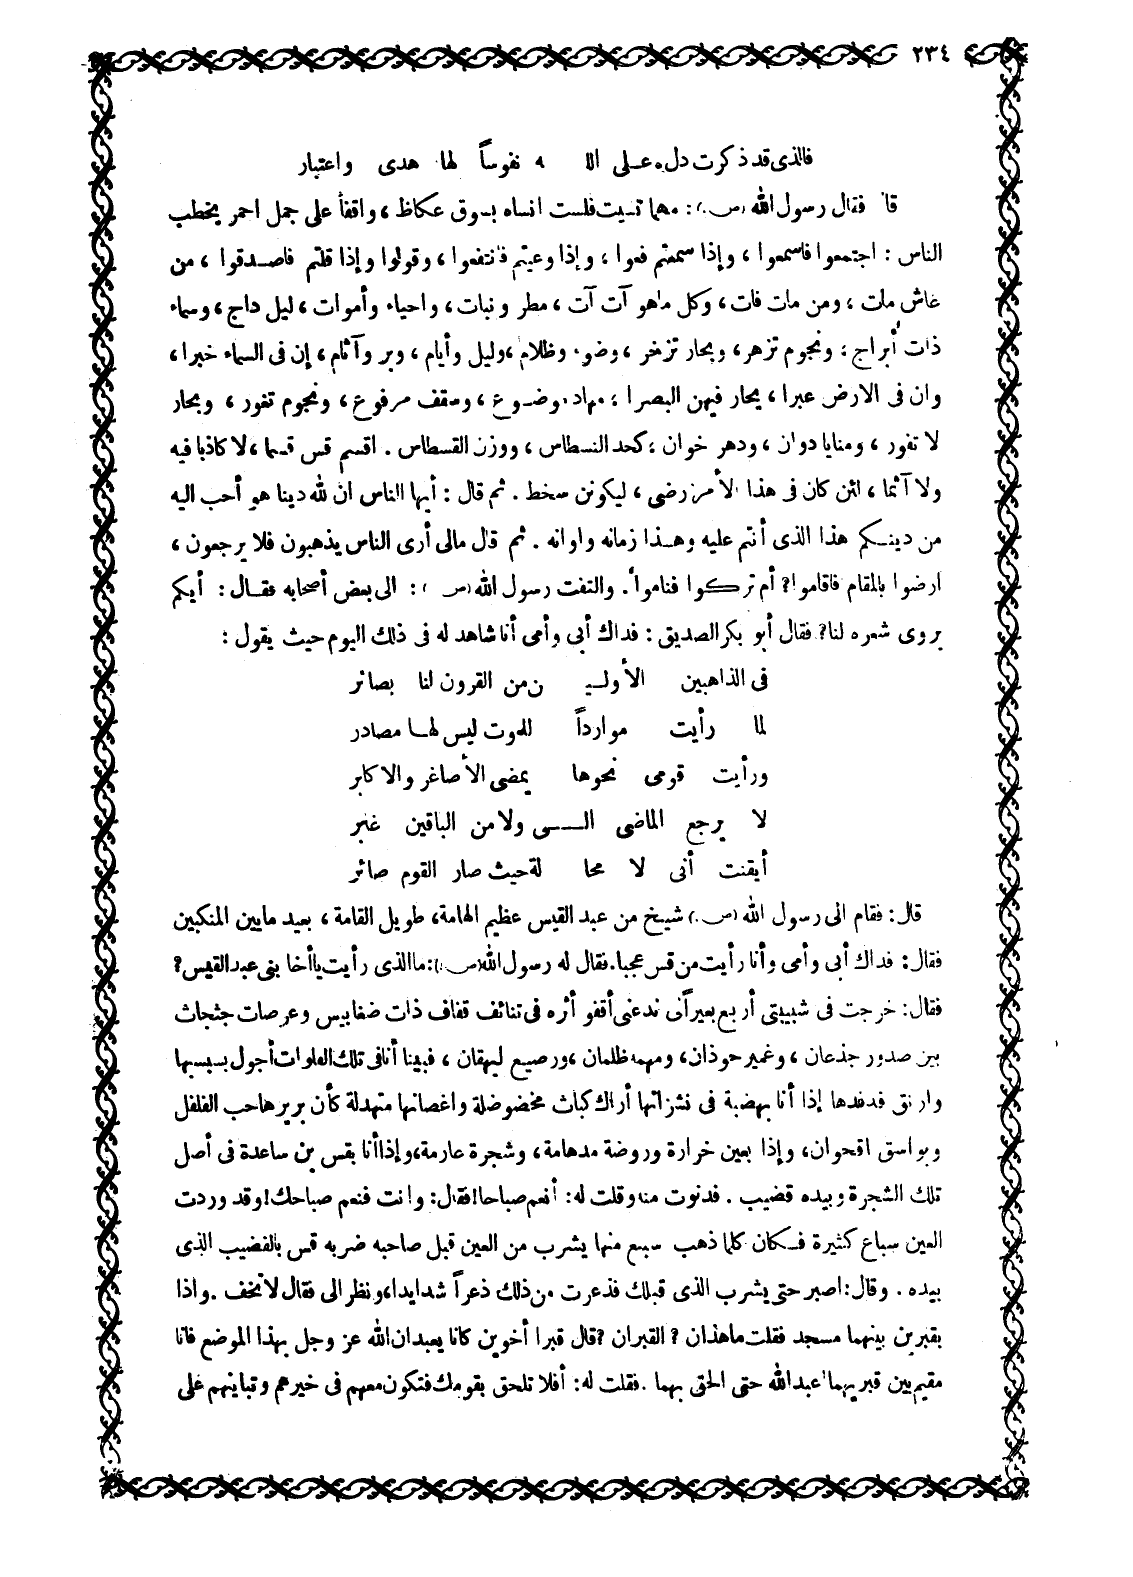 ٢٣٤
فالذى قد ذكرت دل على الله نفوساً لها هدى واعتبار
قا فقال رسول الله (ص) : مهما نسيت فلست انساه بسوق عكاظ ، واقفاً على جمل احمر يخطب
الناس : اجتمعوا فاسمعوا ، وإذا سمعتم فعوا ، وإذا وعيتم فانتفعوا ، وقولوا وإذا قلتم فاصدقوا ، من
عاش مات ، ومن مات فات ، وكل ماهو آت آت ، مطر ونبات ، واحياء وأموات ، ليل داج ، وسماء
ذات أبراج ، ونجوم تزهر ، وبحار تزخر ، وضوء وظلام ، وليل وأيام ، وبر وآثام ، إن فى السماء خبرا ،
وان فى الارض عبرا ، يحار فيهن البصرا ، مهاد موضوع ، وسقف مرفوع ، ونجوم تغور ، وبحار
لا تفور ، ومنايا دوان ، ودهر خوان ، كحد النسطاس ، ووزن القسطاس . اقسم قس قسما ، لا كاذبا فيه
ولا آثما ، لئن كان فى هذا الأمر رضى ، ليكونن سخط . ثم قال : أيها الناس ان لله دينا هو أحب اليه
من دينكم هذا الذى أنتم عليه وهذا زمانه واوانه . ثم قال مالى أرى الناس يذهبون فلا يرجعون ،
ارضوا بالمقام فاقاموا ؟ أم تركوا فناموا . والتفت رسول الله (ص) : الى بعض أصحابه فقال : أيكم
يروى شعره لنا ؟ فقال أبو بكر الصديق : فداك أبى وأمى أنا شاهد له فى ذلك اليوم حيث يقول :
فى الذاهبين الأولـيـ ن من القرون لنا بصائر
لما رأيت موارداً للموت ليس لها مصادر
ورأيت قومى نحوها يمضى الأصاغر والاكابر
لا يرجع الماضى الـــى ولا من الباقين غابر
أيقنت أنى لا محا لة حيث صار القوم صائر
قال : فقام الى رسول الله (ص) شيخ من عبد القيس عظيم الهامة ، طويل القامة ، بعيد مابين المنكبين
فقال : فداك أبى وأمى وأنا رأيت من قس عجبا . فقال له رسول الله (ص) : ما الذى رأيت يا أخا بنى عبد القيس ؟
فقال : خرجت فى شبيبتى أربع بعيراً ند عنى أقفو أثره فى تنائف قفاف ذات ضغابيس وعرصات جثجاث
بين صدور جذعان ، وغمير حوذان ، ومهمه ظلمان ، ورصيع ليهقان ، فبينا أنا فى تلك الفلوات أجول بسبسبها
وارنق فدفدها إذا أنا بهضبة فى نشزاتها أراك كباث مخضوضلة واغصانها متهدلة كأن بريرها حب الفلفل
وبواسق اقحوان ، وإذا بعين خرارة وروضة مدهامة ، وشجرة عارمة ، وإذا أنا بقس بن ساعدة فى أصل
تلك الشجرة وبيده قضيب . فدنوت منه وقلت له : أنعم صباحا ! فقال : وانت فنعم صباحك ! وقد وردت
العين سباع كثيرة فـكان كلما ذهب سبع منها يشرب من العين قبل صاحبه ضربه قس بالقضيب الذى
بيده . وقال : اصبر حتى يشرب الذى قبلك فذعرت من ذلك ذعراً شديدا ، ونظر الى فقال لا تخف . واذا
بقبرين بينهما مسجد فقلت ماهذان ؟ القبران ؟ قال قبرا أخوين كانا يعبدان الله عز وجل بهذا الموضع فانا
مقيم بين قبريهما اعبد الله حتى الحق بهما . فقلت له : أفلا تلحق بقومك فتكون معهم فى خيرهم وتباينهم على